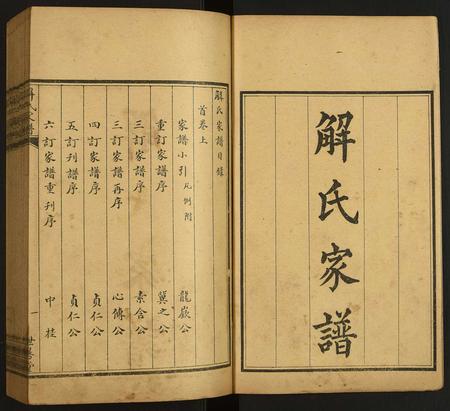 解氏家譜
解氏家譜目錄
首卷上
家譜小引 凡例附 龍嶽公
重訂家譜序 冀之公
三訂家譜序 素含公
三訂家譜再序 心傳公
四訂家譜序 貞仁公
五訂刊譜序 貞仁公
六訂家譜重刊序 中桂
一